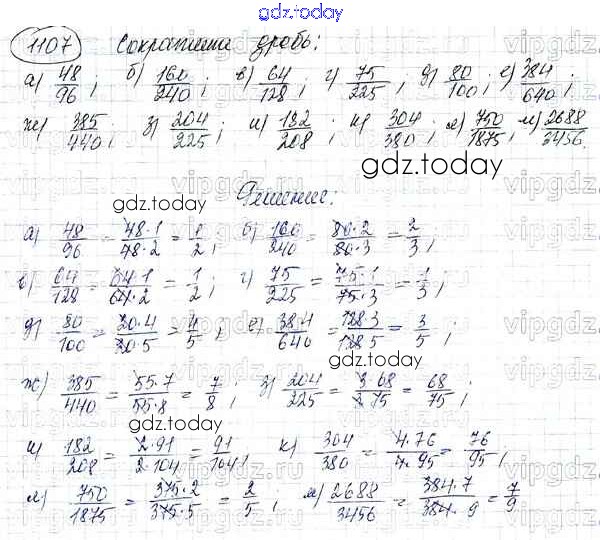 gdz.today
1107 Сократите дробь:
а) 48/96; б) 160/240; в) 64/128; г) 75/225; д) 80/100; е) 384/640;
ж) 385/440; з) 204/225; и) 182/208; к) 304/380; л) 750/1875; м) 2688/3456.
gdz.today
Решение:
gdz.today
а) 48/96 = 48·1/48·2 = 1/2; б) 160/240 = 80·2/80·3 = 2/3;
в) 64/128 = 64·1/64·2 = 1/2; г) 75/225 = 75·1/75·3 = 1/3;
д) 80/100 = 20·4/20·5 = 4/5; е) 384/640 = 128·3/128·5 = 3/5;
gdz.today
ж) 385/440 = 55·7/55·8 = 7/8; з) 204/225 = 3·68/3·75 = 68/75;
gdz.today
и) 182/208 = 2·91/2·104 = 91/104; к) 304/380 = 4·76/4·95 = 76/95;
л) 750/1875 = 375·2/375·5 = 2/5; м) 2688/3456 = 384·7/384·9 = 7/9